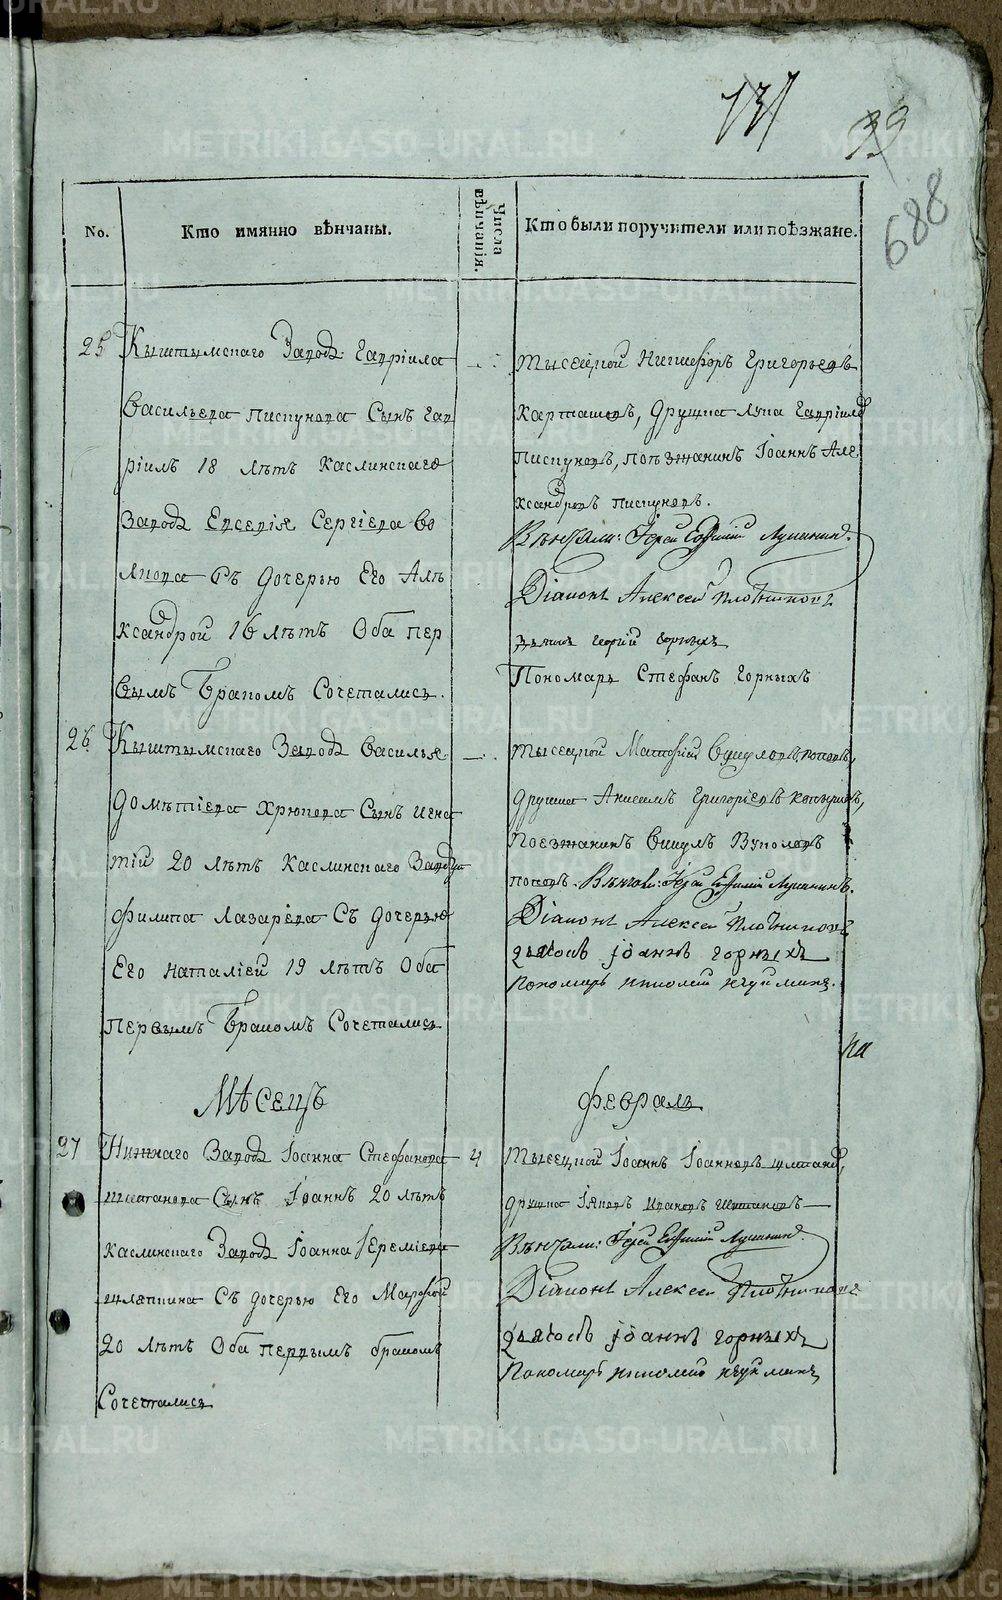 131
39
688
No.
Кто имянно вѣнчаны.
Числа вѣнчанія.
Кто были поручители или поѣзжане.
25
Кыштымскаго Завода Гавріила
Васильева Пискунова Сынъ Гав
ріилъ 18 лѣтъ Каслинскаго
Завода Евсевія Сергіева
съ дочерью Его Але
ксандрой 16 лѣтъ Оба пер
вымъ Бракомъ Сочетались.
Тысецкой Никифоръ Григорьевъ
Карташевъ, Дружка Лука Гавріиловъ
Пискуновъ, поѣзжанинъ Іоаннъ Але
ксандровъ Пискуновъ.
Вѣнчали: Іерей Евфимій Лушкинъ.
Діаконъ Алексей Плотниковъ
Георгій Горныхъ
Пономарь Стефанъ Горныхъ
26
Кыштымскаго Завода Василья
Дометіева Хрюкова Сынъ Игна
тій 20 лѣтъ Каслинскаго Завода
Филипа Лазарева Съ дочерью
Его Наталіей 19 лѣтъ Оба
первымъ Бракомъ Сочетались
Тысецкой Матфей
Дружка Анисимъ Григоріевъ
Поезжанинъ Викулъ Вуколовъ
Вѣнчали: Іерей Евфимій Лушкинъ.
Діаконъ Алексей Плотниковъ
дьячокъ Іоаннъ Горныхъ
Пономарь
на
Мѣсецъ Февраль
27
Нижнаго Завода Іоанна Стефанова
Шштанова Сынъ Іоаннъ 20 лѣтъ
Каслинскаго Завода Іоанна Іеремieва
Шляпкина Съ дочерью Его Марфой
20 лѣтъ Оба первымъ бракомъ
Сочетались
4
Тысецкой Іоаннъ Іоанновъ
дружка Іяковъ Ивановъ
Вѣнчали: Іерей Евфимій Лушкинъ.
Діаконъ Алексей Плотниковъ
дьячокъ Іоаннъ Горныхъ
Пономарь
METRIKI.GASO-URAL.RU